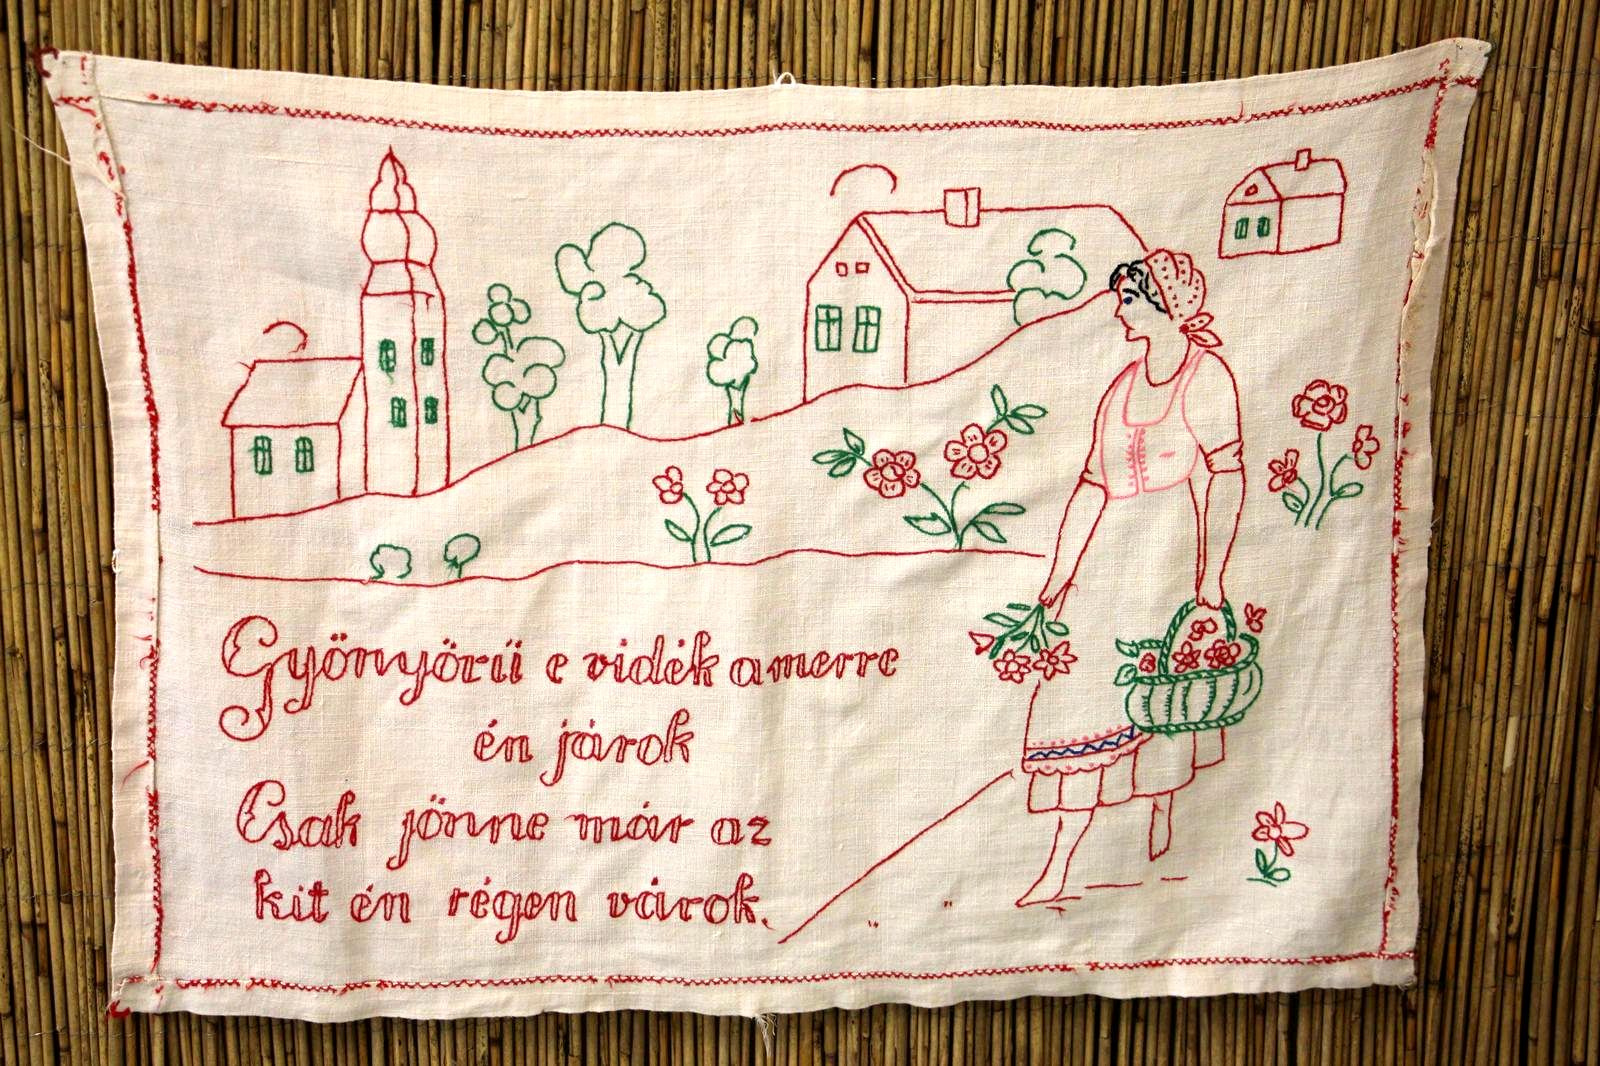 Gyönyörü e vidék amerre
én járok
Csak jönne már az
kit én régen várok.